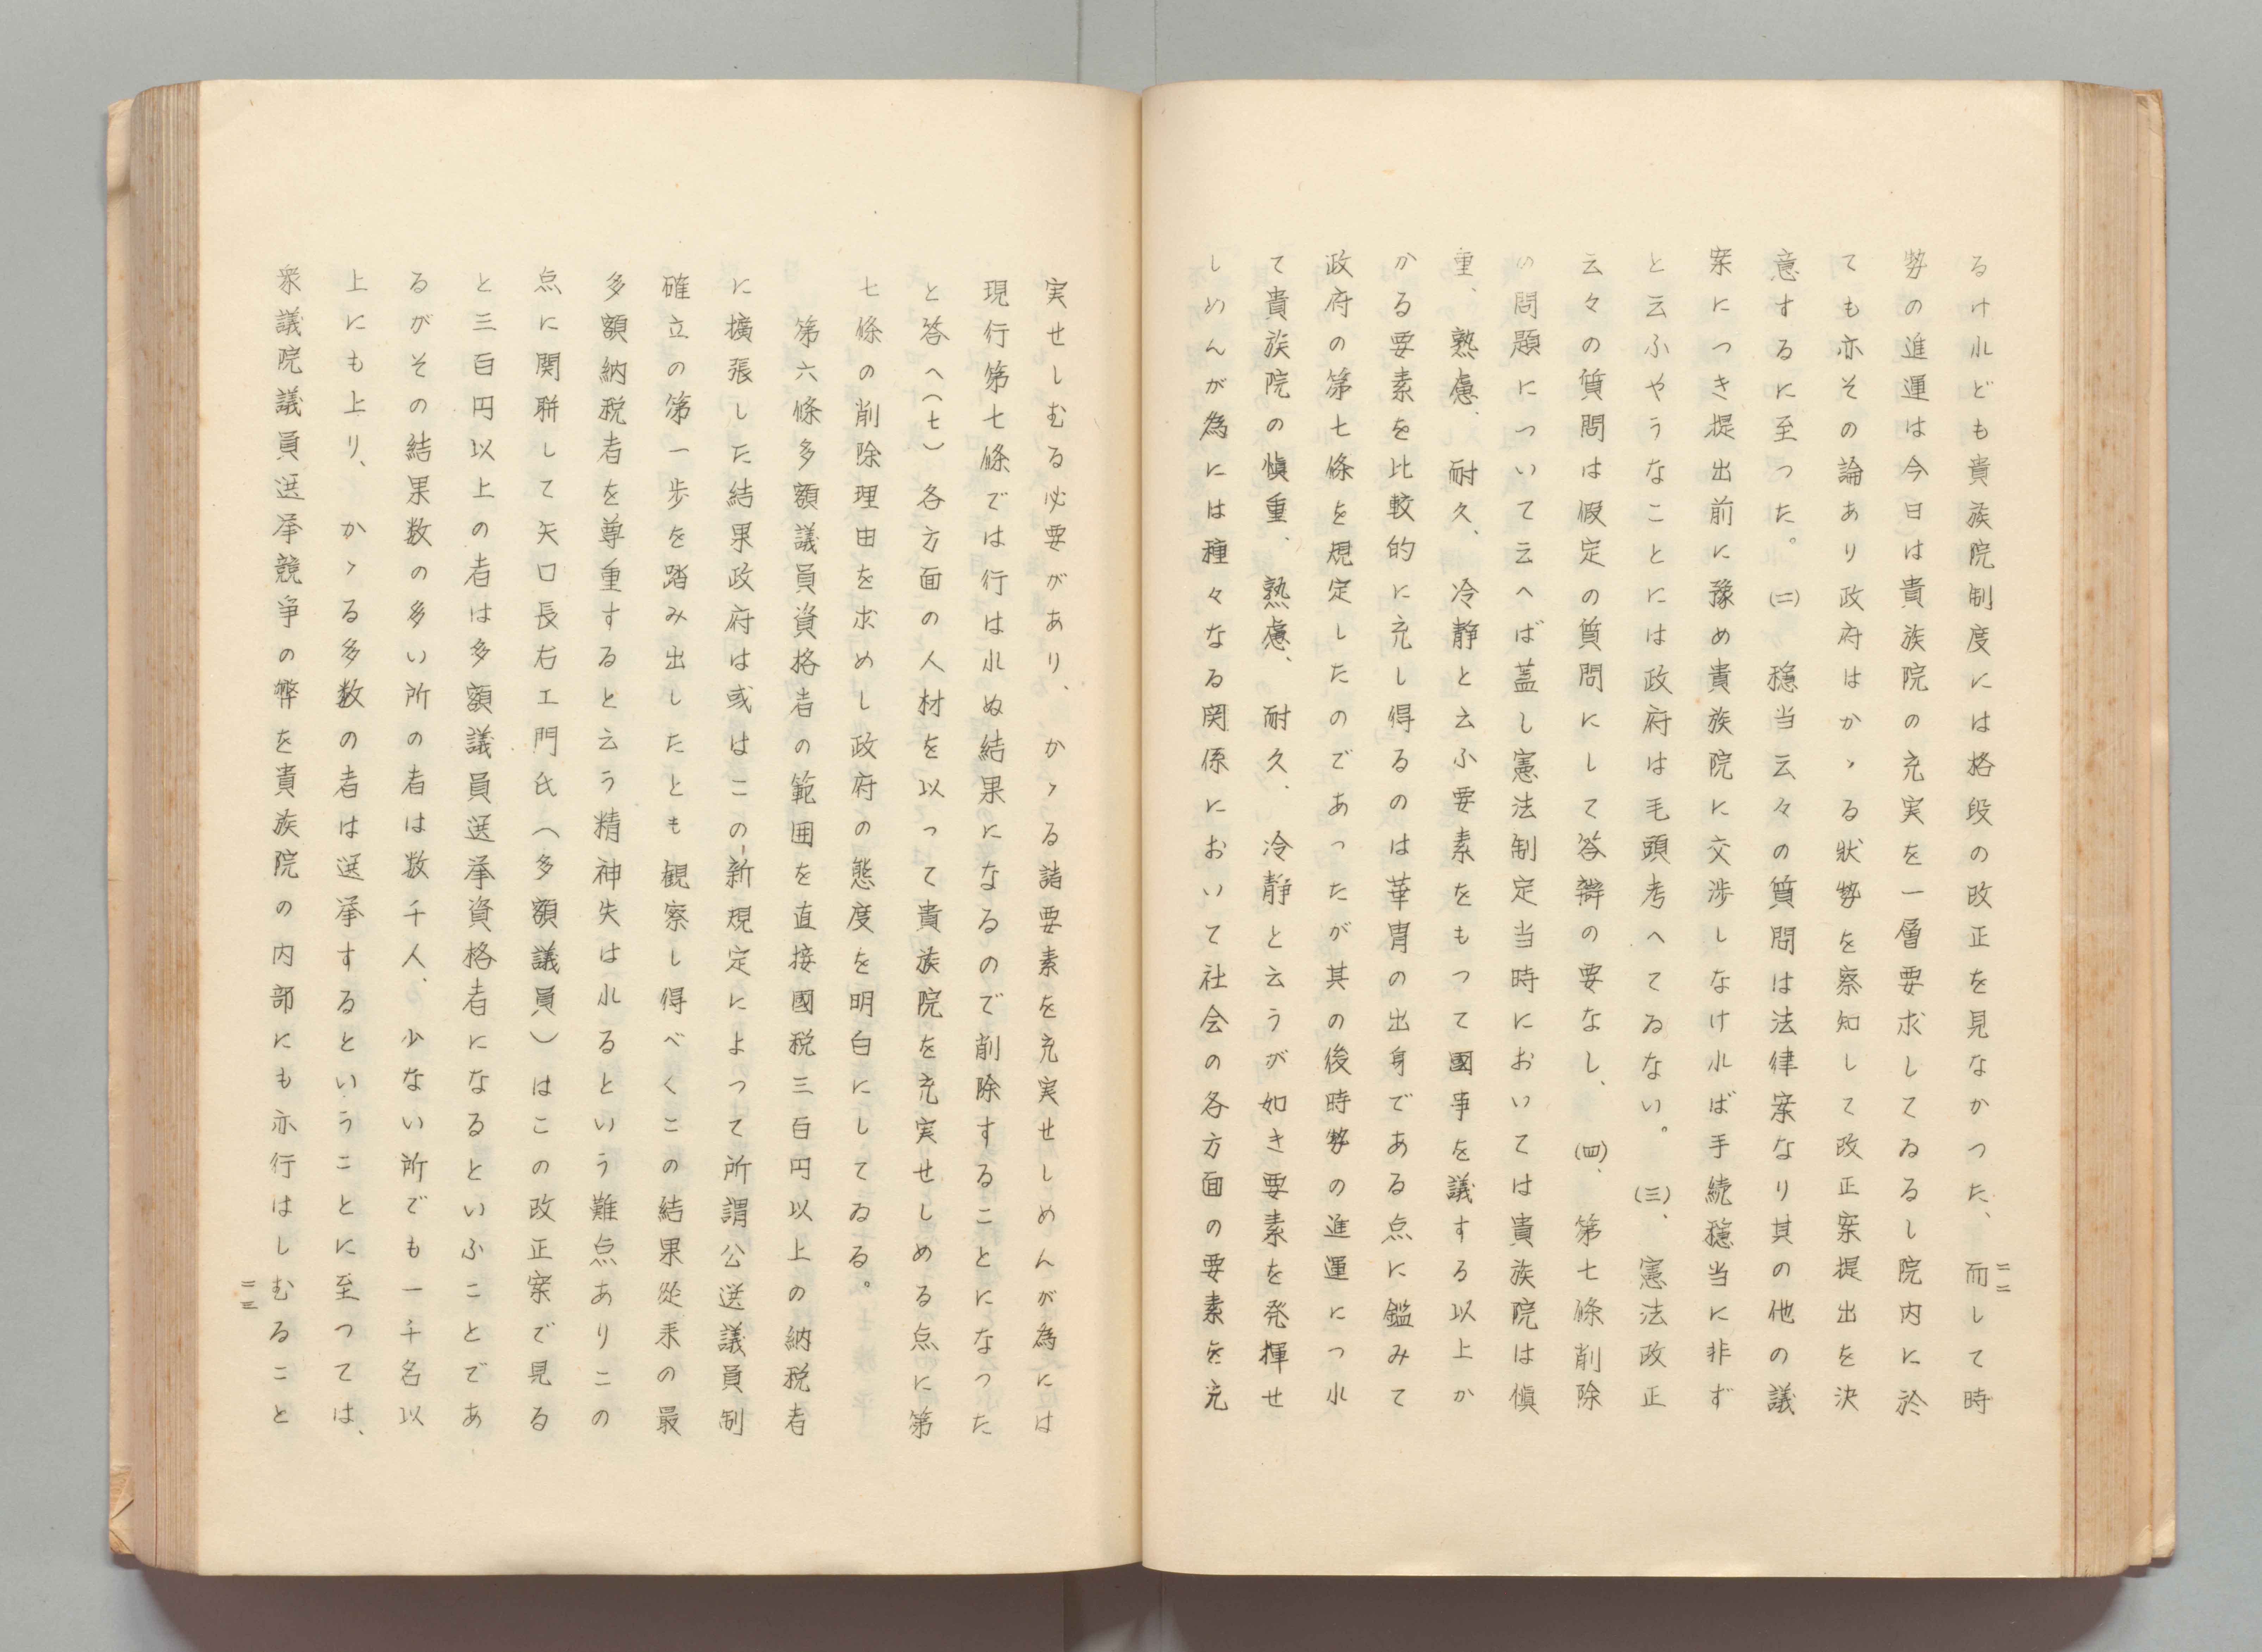 るけれども貴族院制度には格段の改正を見なかつた、而して時
勢の進運は今日は貴族院の充実を一層要求してゐるし院内に於
ても亦その論あり政府はかゝる状勢を察知して改正案提出を決
意するに至つた。(二)穏当云々の質問は法律案なり其の他の議
案につき提出前に豫め貴族院に交渉しなければ手続穏当に非ず
と云ふやうなことには政府は毛頭考へてゐない。(三)、憲法政正
云々の質問は假定の質問にして答辯の要なし、(四)、第七條削除
の問題について云へば蓋し憲法制定当時においては貴族院は愼
重、熟慮、耐久、冷静と云ふ要素をもつて國事を議する以上か
かる要素を比較的に充し得るのは華冑の出身である点に鑑みて
政府の第七條を規定したのであつたが其の後時勢の進運につれ
て貴族院の愼重、熟慮、耐久、冷静と云うが如き要素を発揮せ
しめんが為には種々なる関係において社会の各方面の要素を充
二二
実せしむる必要があり、かゝる諸要素を充実せしめんが為には
現行第七條では行はれぬ結果になるので削除することになつた
と答へ(七)各方面の人材を以つて貴族院を充実せしめる点に第
七條の削除理由を求めし政府の態度を明白にしてゐる。
第六條多額議員資格者の範囲を直接國税三百円以上の納税者
に擴張した結果政府は或はこの新規定によつて所謂公送議員制
確立の第一歩を踏み出したとも観察し得べくこの結果從来の最
多額納税者を尊重すると云う精神失はれるという難点ありこの
点に関聯して矢口長右エ門氏(多額議員)はこの改正案で見る
と三百円以上の者は多額議員選挙資格者になるといふことであ
るがその結果数の多い所の者は数千人、少ない所でも一千名以
上にも上り、かゝる多数の者は選挙するということに至つては、
衆議院議員選挙競争の弊を貴族院の内部にも亦行はしむること
二三